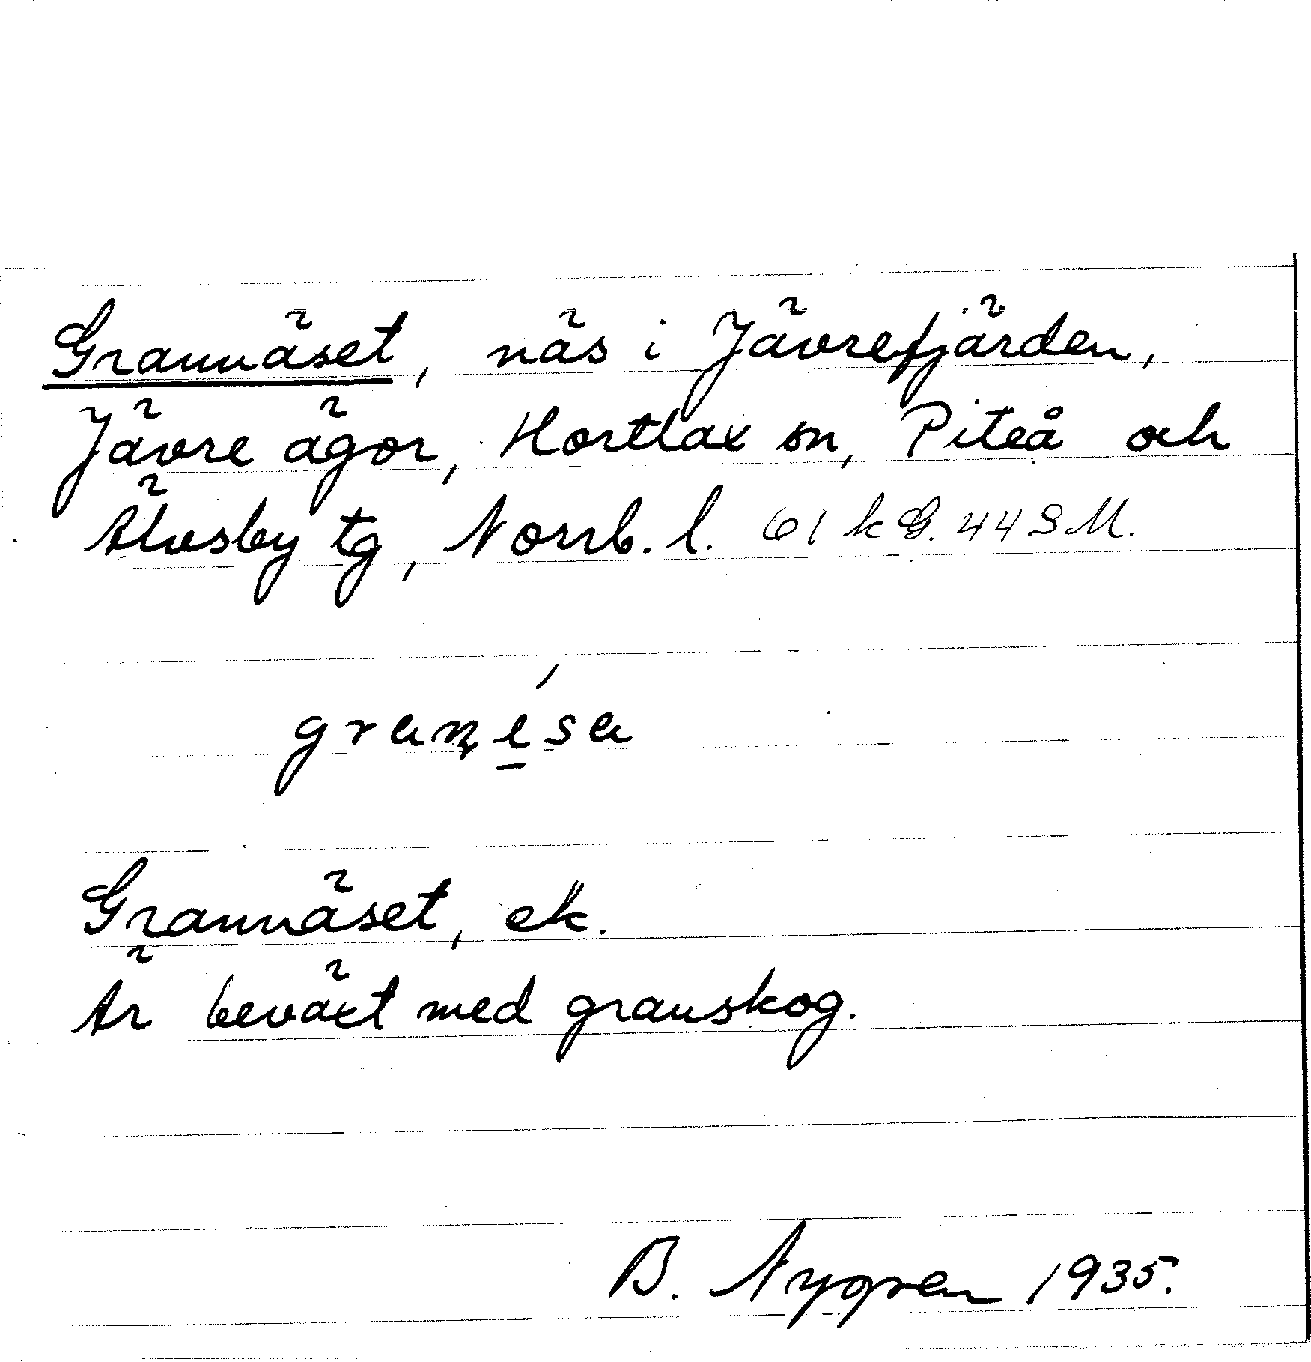 Grannäset, näs i Jävrefjärden,
Jävre ägor, Hortlax sn, Piteå och
Älvsby tg, Norrb. l. 61 k G. 44 S M.
Grannäset, ek.
Är beväxt med granskog.
B. Nygren 1935.